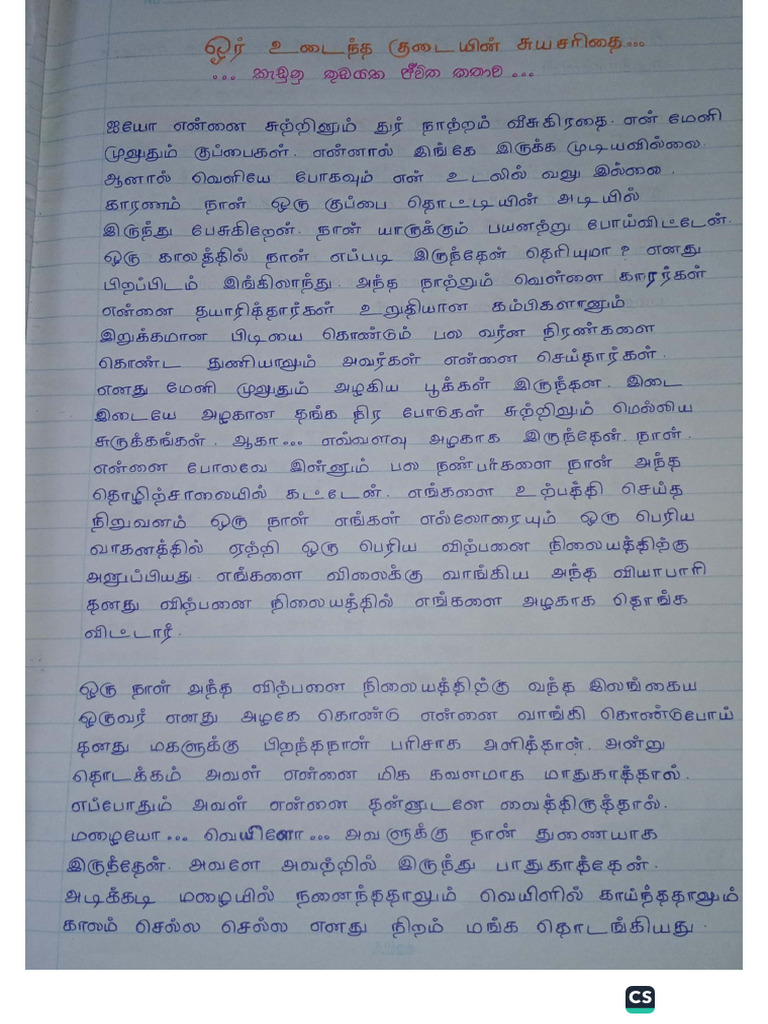 ஓர் உடைந்த குடையின் சுயசரிதை...
... කැඩුනු කුඩයක ජීවිත කතාව ...
ஐயோ என்னை சுற்றினும் துர் நாற்றம் வீசுகிரதை. என் மேனி
முழுதும் குப்பைகள். என்னால் இங்கே இருக்க முடியவில்லை.
ஆனால் வெளியே போகவும் என் உடலில் வலு இல்லை.
காரணம் நான் ஒரு குப்பை தொட்டியின் அடியில்
இருந்து பேசுகிறேன். நான் யாருக்கும் பயனற்று போய்விட்டேன்.
ஒரு காலத்தில் நான் எப்படி இருந்தேன் தெரியுமா? எனது
பிறப்பிடம் இங்கிலாந்து. அந்த நாற்றும் வெள்ளை காரர்கள்
என்னை தயாரித்தார்கள் உறுதியான கம்பிகளானும்
இறுக்கமான பிடியை கொண்டும் பல வர்ன நிரண்களை
கொண்ட துணியாலும் அவர்கள் என்னை செய்தார்கள்.
எனது மேனி முழுதும் அழகிய பூக்கள் இருந்தன. இடை
இடையே அழகான தங்க நிர போடுகள் சுற்றிலும் மெல்லிய
சுருக்கங்கள். ஆகா... எவ்வளவு அழகாக இருந்தேன். நான்.
என்னை போலவே இன்னும் பல நண்பர்களை நான் அந்த
தொழிற்சாலையில் கட்டேன். எங்களை உற்பத்தி செய்த
நிறுவனம் ஒரு நாள் எங்கள் எல்லோரையும் ஒரு பெரிய
வாகனத்தில் ஏற்றி ஒரு பெரிய விற்பனை நிலையத்திற்கு
அனுப்பியது. எங்களை விலைக்கு வாங்கிய அந்த வியாபாரி
தனது விற்பனை நிலையத்தில் எங்களை அழகாக தொங்க
விட்டார்.
ஒரு நாள் அந்த விற்பனை நிலையத்திற்கு வந்த இலங்கைய
ஒருவர் எனது அழகே கொண்டு என்னை வாங்கி கொண்டுபோய்
தனது மகளுக்கு பிறந்தநாள் பரிசாக அளித்தான். அன்று
தொடக்கம் அவள் என்னை மிக கவனமாக மாதுகாத்தால்.
எப்போதும் அவள் என்னை தன்னுடனே வைத்திருத்தால்.
மழையோ... வெயிளோ... அவளுக்கு நான் துணையாக
இருந்தேன். அவளே அவற்றில் இருந்து பாதுகாத்தேன்.
அடிக்கடி மழையில் நனைந்ததாலும் வெயிளில் காய்ந்ததாலும்
காலம் செல்ல செல்ல எனது நிறம் மங்க தொடங்கியது.
CS